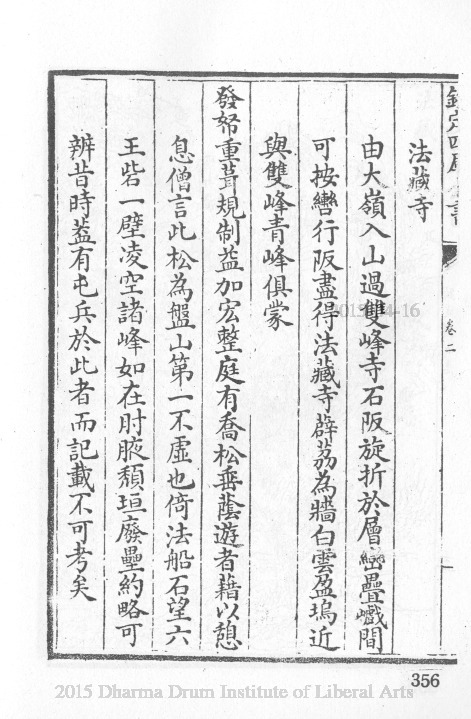 欽定四庫全書
卷二
法藏寺
由大嶺入山過雙峰寺石阪旋折於層巒疊巘間
可按轡行阪盡得法藏寺薜荔為牆白雲盈塢近
與雙峰青峰俱蒙
發帑重葺規制益加宏整庭有喬松垂蔭遊者藉以憩
息僧言此松為盤山第一不虛也倚法船石望六
王砦一壁凌空諸峰如在肘腋頹垣廢壘約略可
辨昔時葢有屯兵於此者而記載不可考矣
356
2015 Dharma Drum Institute of Liberal Arts